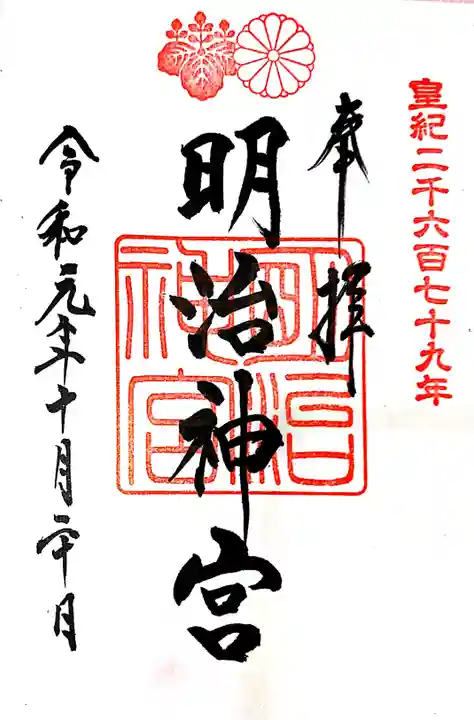 皇紀二千六百七十九年
奉拝
明治神宮
明治
神宮
令和元年十月二十日